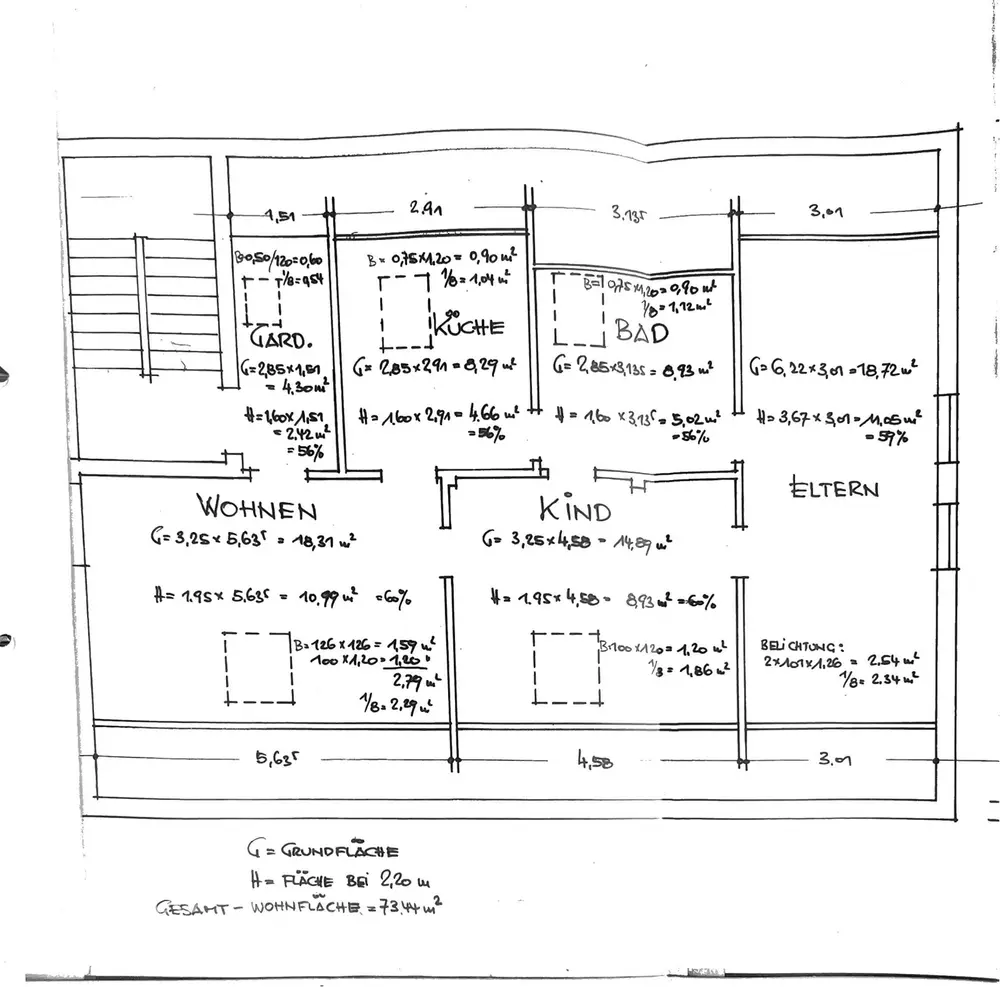 1,51
2.91
3.135
3.01
B=0,50/120=0,60
1/8=0,54
GARD.
G=2,85x1,51
= 4.30m²
H=1,60x1,51
= 2,42 m²
= 56%
B= 0,75x1,20 = 0,90 m²
1/8= 1,04 m²
KÜCHE
G= 2,85x2,91 = 8,29 m²
H= 1,60 x 2,91 = 4.66 m²
= 56%
B= 0,75x1,20 = 0,90 m²
1/8 = 1,12 m²
BAD
G= 2,85x3,135 = 8,93 m²
H= 1,60 x 3,135 = 5,02 m²
= 56%
G= 6,22 x 3,01 = 18,72 m²
H= 3,67 x 3,01 = 11,05 m²
= 59%
ELTERN
WOHNEN
G= 3,25 x 5,635 = 18,31 m²
H= 1.95 x 5,635 = 10,99 m² = 60%
B= 126 x 126 = 1,59 m²
100 x 1,20 = 1,20 "
2,79 m²
1/8 = 2,29 m²
KIND
G= 3,25x4,58 = 14,89 m²
H= 1.95 x 4,58 = 8,93 m² = 60%
B=100x120 = 1,20 m²
1/8 = 1,86 m²
BELICHTUNG:
2x1,01x1,26 = 2.54 m²
1/8= 2.34 m²
5,635
4,58
3.01
G = GRUNDFLÄCHE
H = FLÄCHE BEI 2,20 m
GESAMT - WOHNFLÄCHE = 73,44 m²